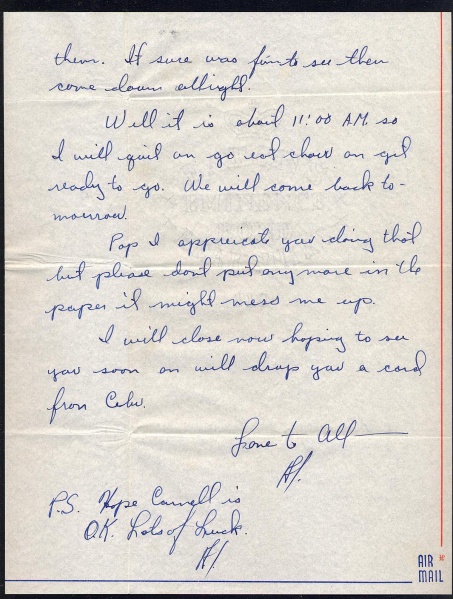 them. It sure was fun to see them
come down allright.
Well it is about 11:00 A.M. so
I will quit an go eat chow an get
ready to go. We will come back to-
mourow.
Pop I appricate you doing that
but please dont put any more in the
paper it might mess me up.
I will close now hoping to see
you soon an will drop you a card
from Cebu.
Love to All
Al.
P.S. Hope Carnell is
O.K. Lots of Luck.
Al
AIR
MAIL